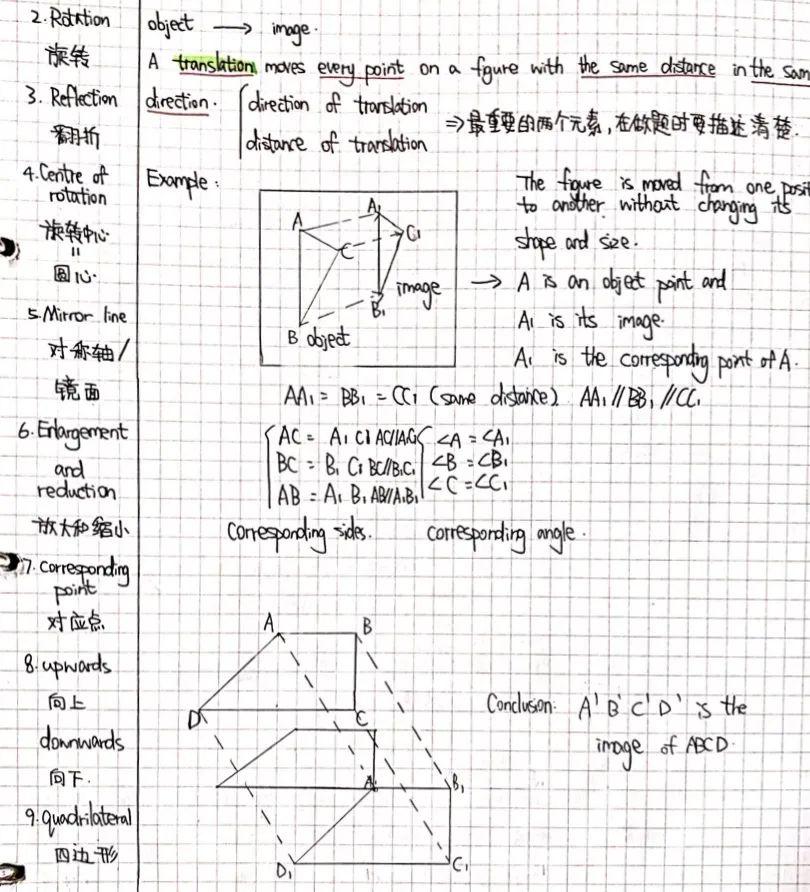 2. Rotation
旋转
3. Reflection
翻折
4. Centre of
rotation
旋转中心
=
圆心.
5. Mirror line
对称轴/
镜面
6. Enlargement
and
reduction
放大和缩小
7. corresponding
point
对应点
8. upwards
向上
downwards
向下.
9. quadrilateral
四边形
object → image.
A translation moves every point on a figure with the same distance in the sam
direction. { direction of translation
distance of translation
⇒最重要的两个元素,在做题时要描述清楚.
Example:
A
A₁
C
C₁
B
B₁
object
image
The figure is moved from one posit
to another without changing its
shape and size.
→ A is an object point and
A₁ is its image.
A₁ is the corresponding point of A.
AA₁ = BB₁ = CC₁ (same distance) AA₁ // BB₁ // CC₁
{ AC = A₁ C₁ AC//A₁C₁ { ∠A = ∠A₁
BC = B₁ C₁ BC//B₁C₁ ∠B = ∠B₁
AB = A₁ B₁ AB//A₁B₁ ∠C = ∠C₁
Corresponding sides. corresponding angle.
A
B
D
C
A₁
B₁
D₁
C₁
Conclusion: A' B' C' D' is the
image of ABCD.